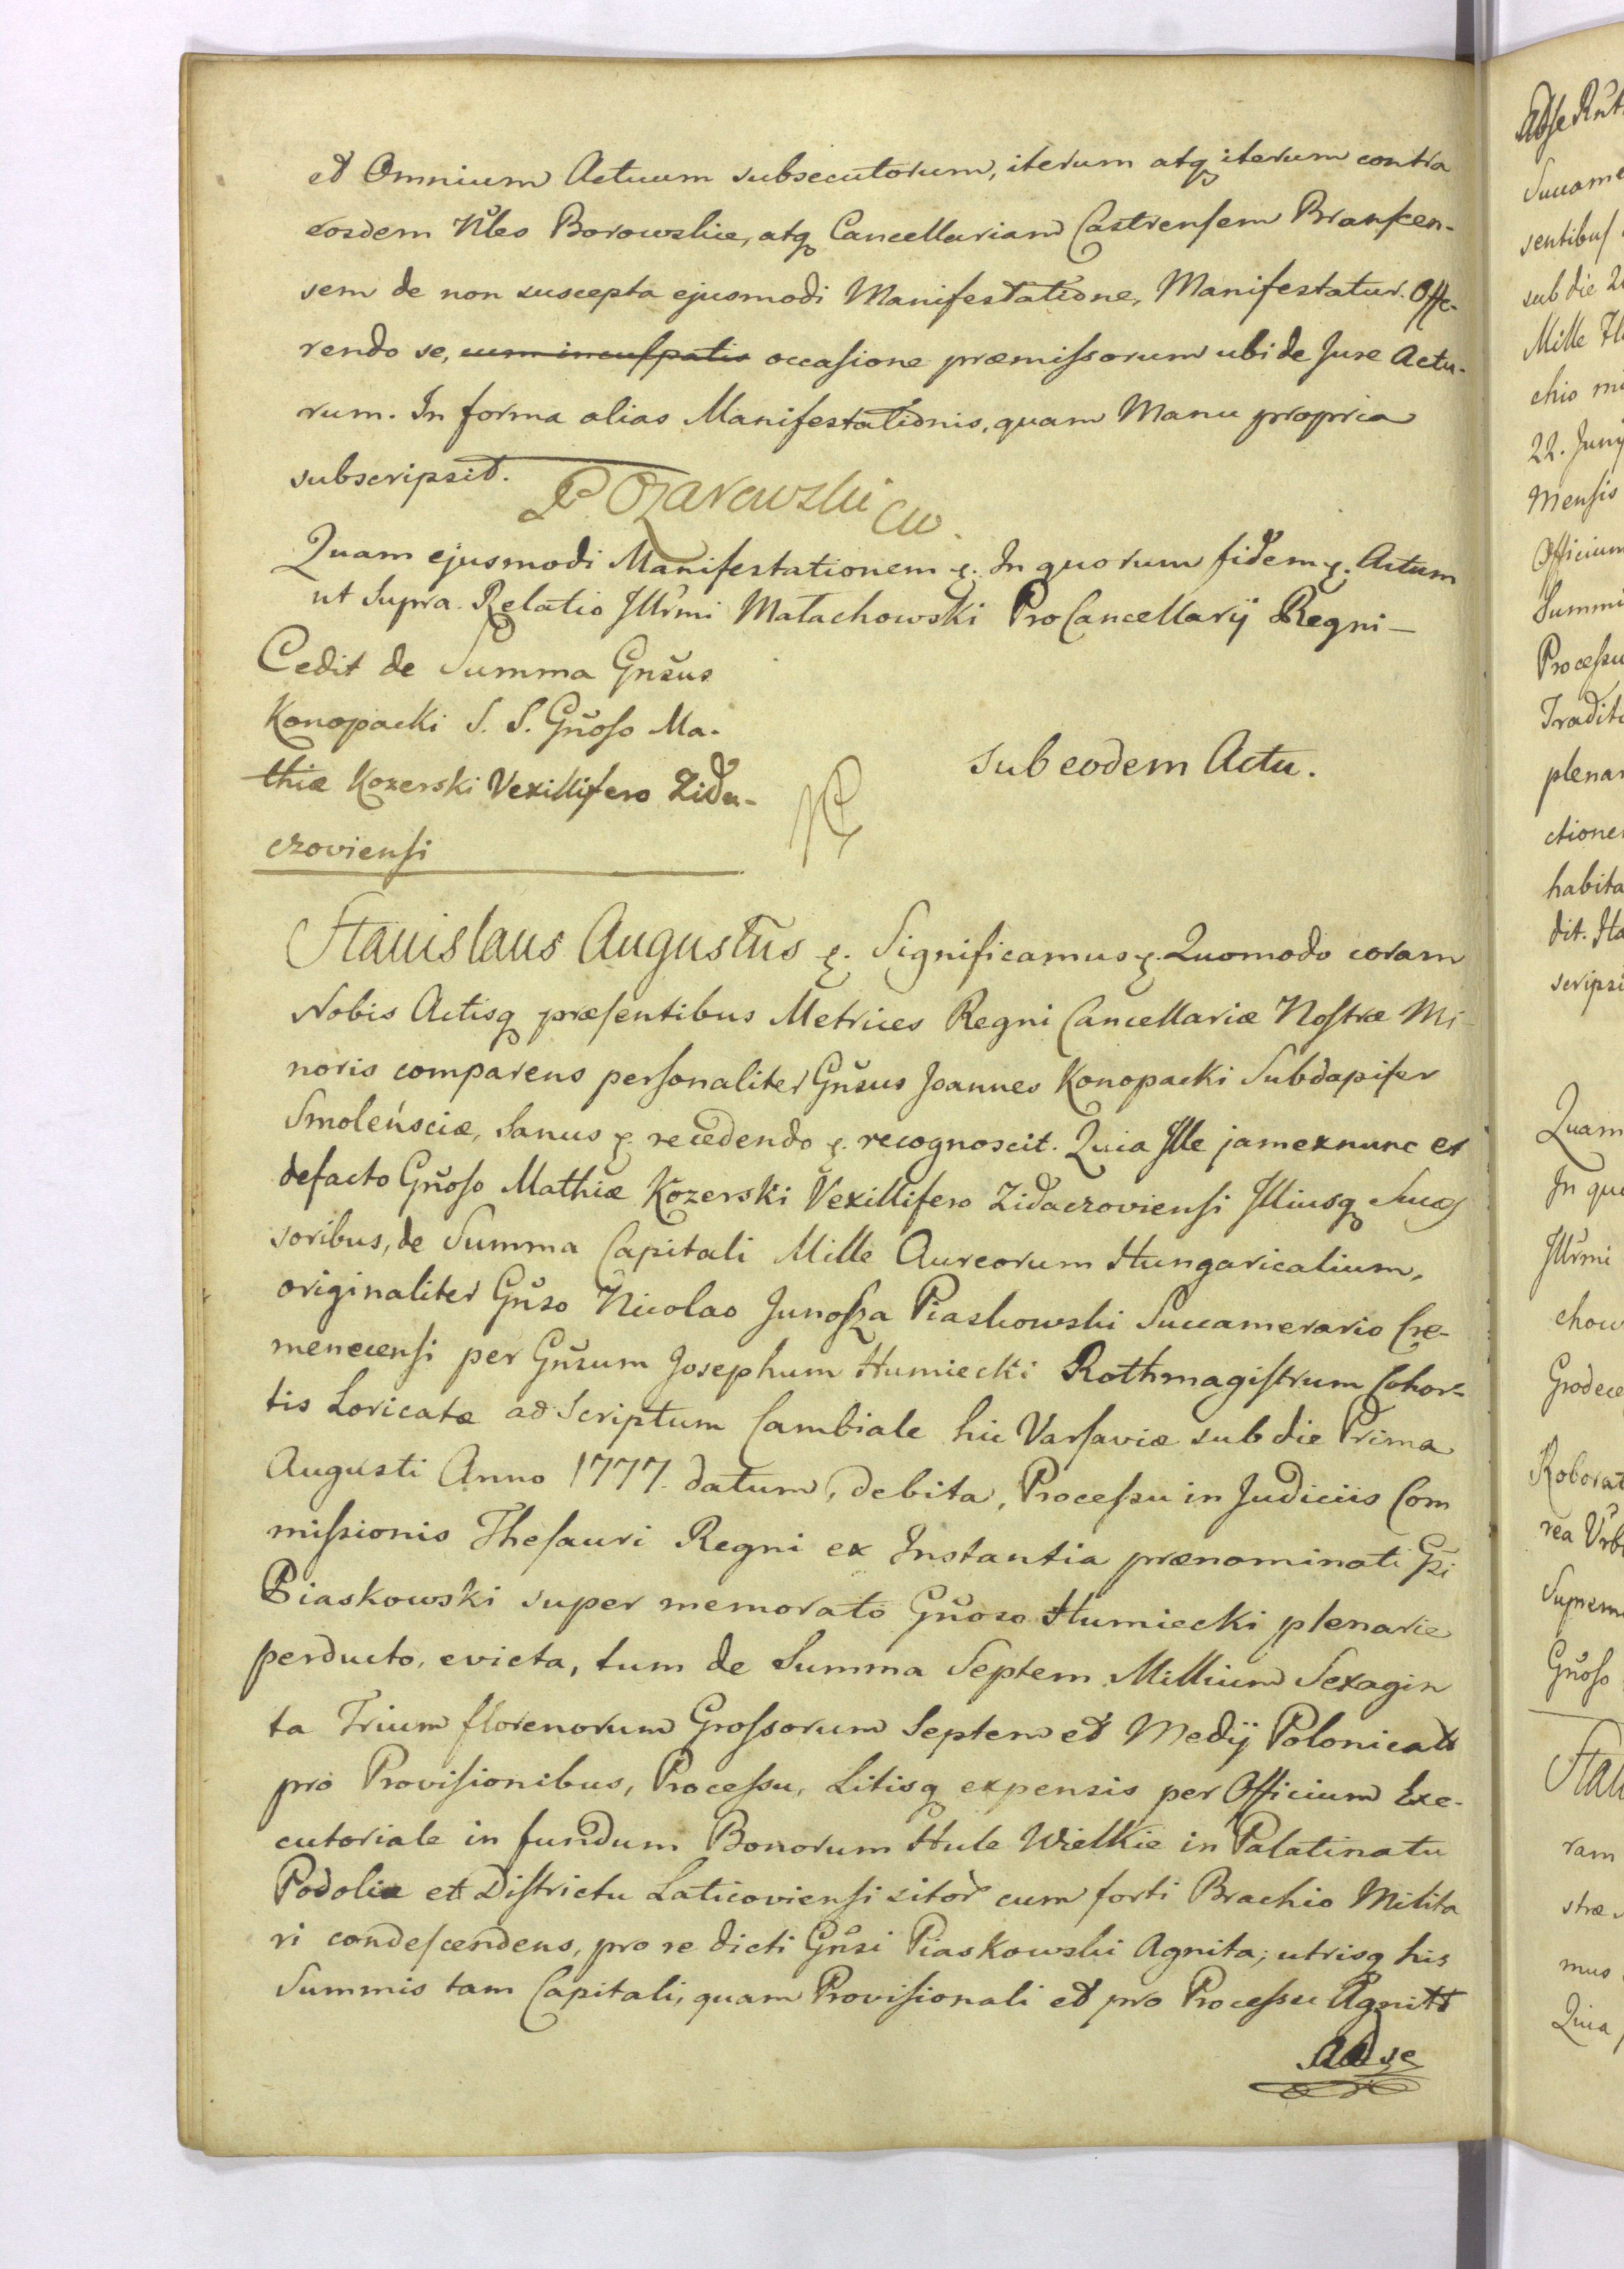 et Omnium Actuum subsecutorum, iterum atq iterum contra
eosdem Nbles Borowskie, atq Cancellariam Castrensem Branscen-
sem de non suscepta ejusmodi Manifestatione, Manifestatur. Offe-
rendo se, cum inculpatis occasione præmissorum ubi de Jure Actu-
rum. In forma alias Manifestationis, quam Manu propria
subscripsit.
P Ożarowski CW.
Quam ejusmodi Manifestationem ę. In quorum fidem ę. Actum
ut Supra. Relatio Jllrmi Małachowski ProCancellarij Regni —
Cedit de Summa Gnsus
Konopacki S. S. Gnoso Ma-
thiæ Kozerski Vexillifero Zida-
czoviensi
Sub eodem Actu.
Stanislaus Augustus ę. Significamus ę. Quomodo coram
Nobis Actisq præsentibus Metrices Regni Cancellariæ Nostræ Mi-
noris comparens personaliter Gnsus Joannes Konopacki Subdapifer
Smolensciæ, Sanus ę. recedendo ę. recognoscit. Quia Jlle jam exnunc et
defacto Gnoso Mathiæ Kozerski Vexillifero Zidaczoviensi Jlliusq Succes
soribus, de Summa Capitali Mille Aureorum Hungaricalium,
originaliter Gnso Nicolao Junosza Piaskowski Succamerario Cre-
menecensi per Gnsum Josephum Humiecki Rothmagistrum Cohor-
tis Loricatæ ad Scriptum Cambiale hic Varsaviæ sub die Prima
Augusti Anno 1777. datum, debita, Processu in Judiciis Com
missionis Thesauri Regni ex Instantia prænominati Gsi
Piaskowski super memorato Gnoso Humiecki plenarie
perducto, evicta, tum de Summa Septem Millium Sexagin
ta Trium florenorum Grossorum Septem et Medij Polonicat
pro Provisionibus, Processu, Litisq expensis per Officium Exe-
cutoriale in fundum Bonorum Hule Wielkie in Palatinatu
Podoliæ et Districtu Laticoviensi sitor cum forti Brachio Milita
ri condescendens, pro re dicti Gnsi Piaskowski Agnita; utrisq his
Summis tam Capitali, quam Provisionali et pro Processu Agnitt
Ad se